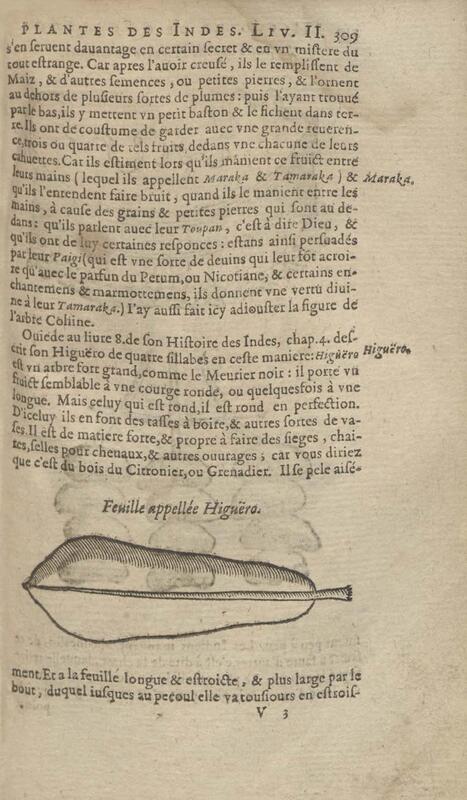 PLANTES DES INDES. LIV. II. 309
s'en seruent dauantage en certain secret & en vn mistere du
tout estrange. Car apres l'auoir creusé, ils le remplissent de
Maiz, & d'autres semences, ou petites pierres, & l'ornent
au dehors de plusieurs sortes de plumes: puis l'ayant troüé
par le bas, ils y mettent vn petit baston & le fichent dans ter-
re. Ils ont de coustume de garder auec vne grande reueren-
ce, trois ou quatre de tels fruits dedans vne chacune de leurs
cahuettes. Car ils estiment lors qu'ils manient ce fruict entre
leurs mains (lequel ils appellent Maraka & Tamaraka) & Maraka.
qu'ils l'entendent faire bruit, quand ils le manient entre les
mains, à cause des grains & petites pierres qui sont au de-
dans: qu'ils parlent auec leur Toupan, c'est à dire Dieu, &
qu'ils ont de luy certaines responces: estans ainsi persuadés
par leur Paigi (qui est vne sorte de deuins qui leur fót acroi-
re qu'auec le parfun du Petum, ou Nicotiane, & certains en-
chantemens & marmottemens, ils donnent vne vertu diui-
ne à leur Tamaraka.) I'ay aussi fait icy adiouster la figure de
l'arbre Cohine.
Ouiede au liure 8. de son Histoire des Indes, chap. 4. des-
crit son Higuëro de quatre sillabes en ceste maniere: Higuëro Higuëro.
est vn arbre fort grand, comme le Meurier noir: il porte vn
fruict semblable à vne courge ronde, ou quelquesfois à vne
longue. Mais celuy qui est rond, il est rond en perfection.
D'iceluy ils en font des tasses à boire, & autres sortes de va-
ses. Il est de matiere forte, & propre à faire des sieges, chai-
res, selles pour cheuaux, & autres ouurages; car vous diriez
que c'est du bois du Citronier, ou Grenadier. Il se pele aisé-
Feuille appellée Higuëro.
ment. Et a la feuille longue & estroicte, & plus large par le
bout, duquel iusques au pecoul elle va tousiours en estrois-
V 3